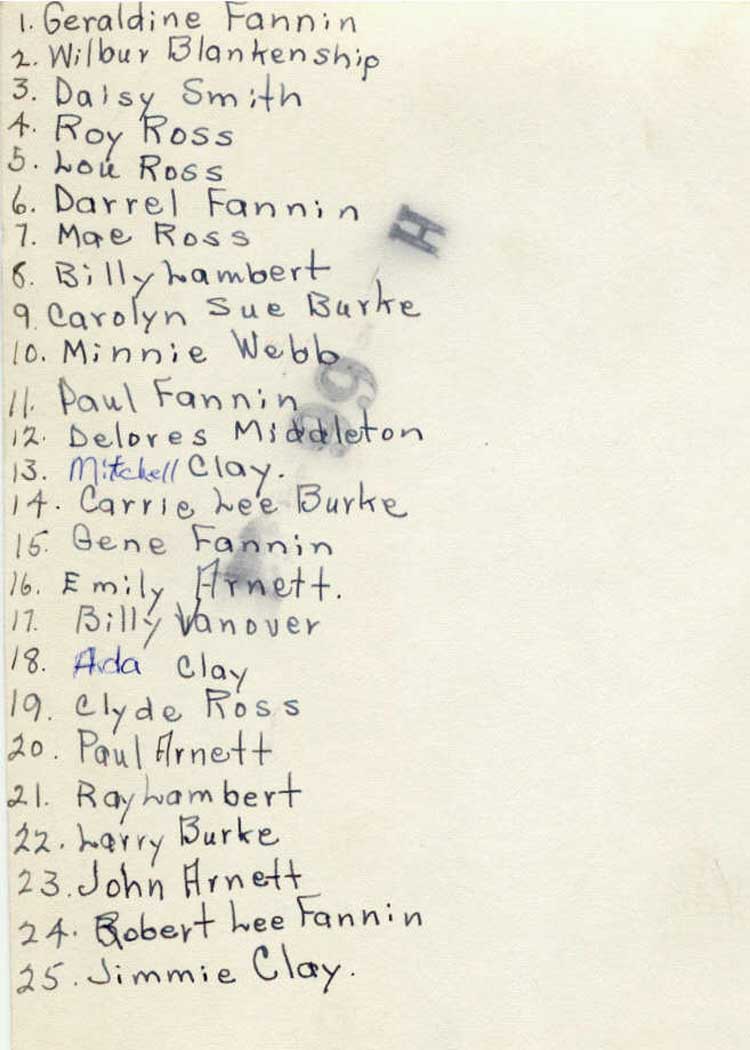 1. Geraldine Fannin
2. Wilbur Blankenship
3. Daisy Smith
4. Roy Ross
5. Lou Ross
6. Darrel Fannin
7. Mae Ross
8. Billy Lambert
9. Carolyn Sue Burke
10. Minnie Webb
11. Paul Fannin
12. Delores Middleton
13. Mitchell Clay.
14. Carrie Lee Burke
15. Gene Fannin
16. Emily Arnett.
17. Billy Vanover
18. Ada Clay
19. Clyde Ross
20. Paul Arnett
21. Ray Lambert
22. Larry Burke
23. John Arnett
24. Robert Lee Fannin
25. Jimmie Clay.
H